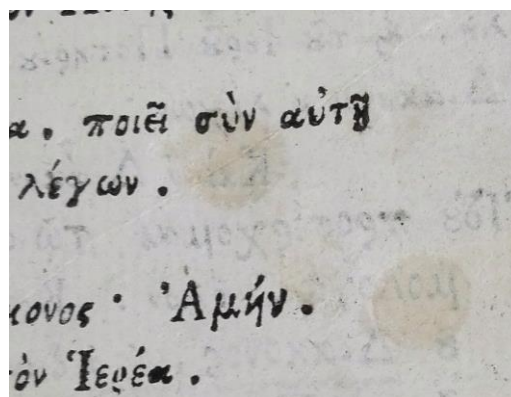 α. ποιεῖ σὺν αὐτῷ
λέγων.
κονος· Ἀμήν.
τὸν Ἱερέα.